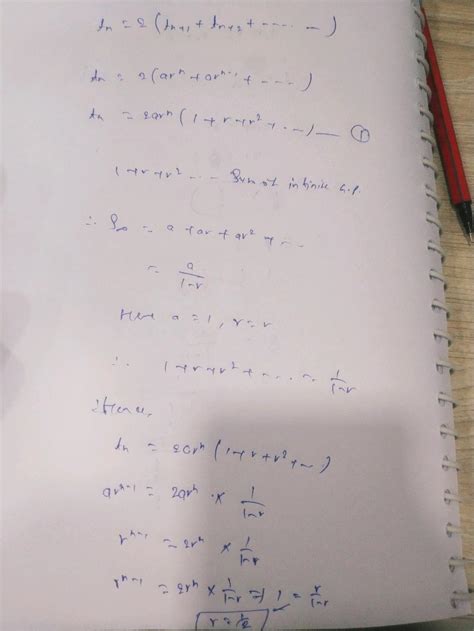 tn = 2 (tn+1 + tn+2 + ------)
tn = 2 (ar^n + ar^n-1 + ----)
tn = 2ar^n (1 + r + r² + ---) — ①
1+r+r² --- Sum of infinite G.P.
∴ S∞ = a + ar + ar² + ---
= a/1-r
Here a = 1, r = r
∴ 1+r+r²+ ----- = 1/1-r
Hence,
tn = 2ar^n (1+r+r²+--)
ar^n-1 = 2ar^n × 1/1-r
r^n-1 = 2r^n × 1/1-r
r^n-1 = 2r^n × 1/1-r =) 1 =